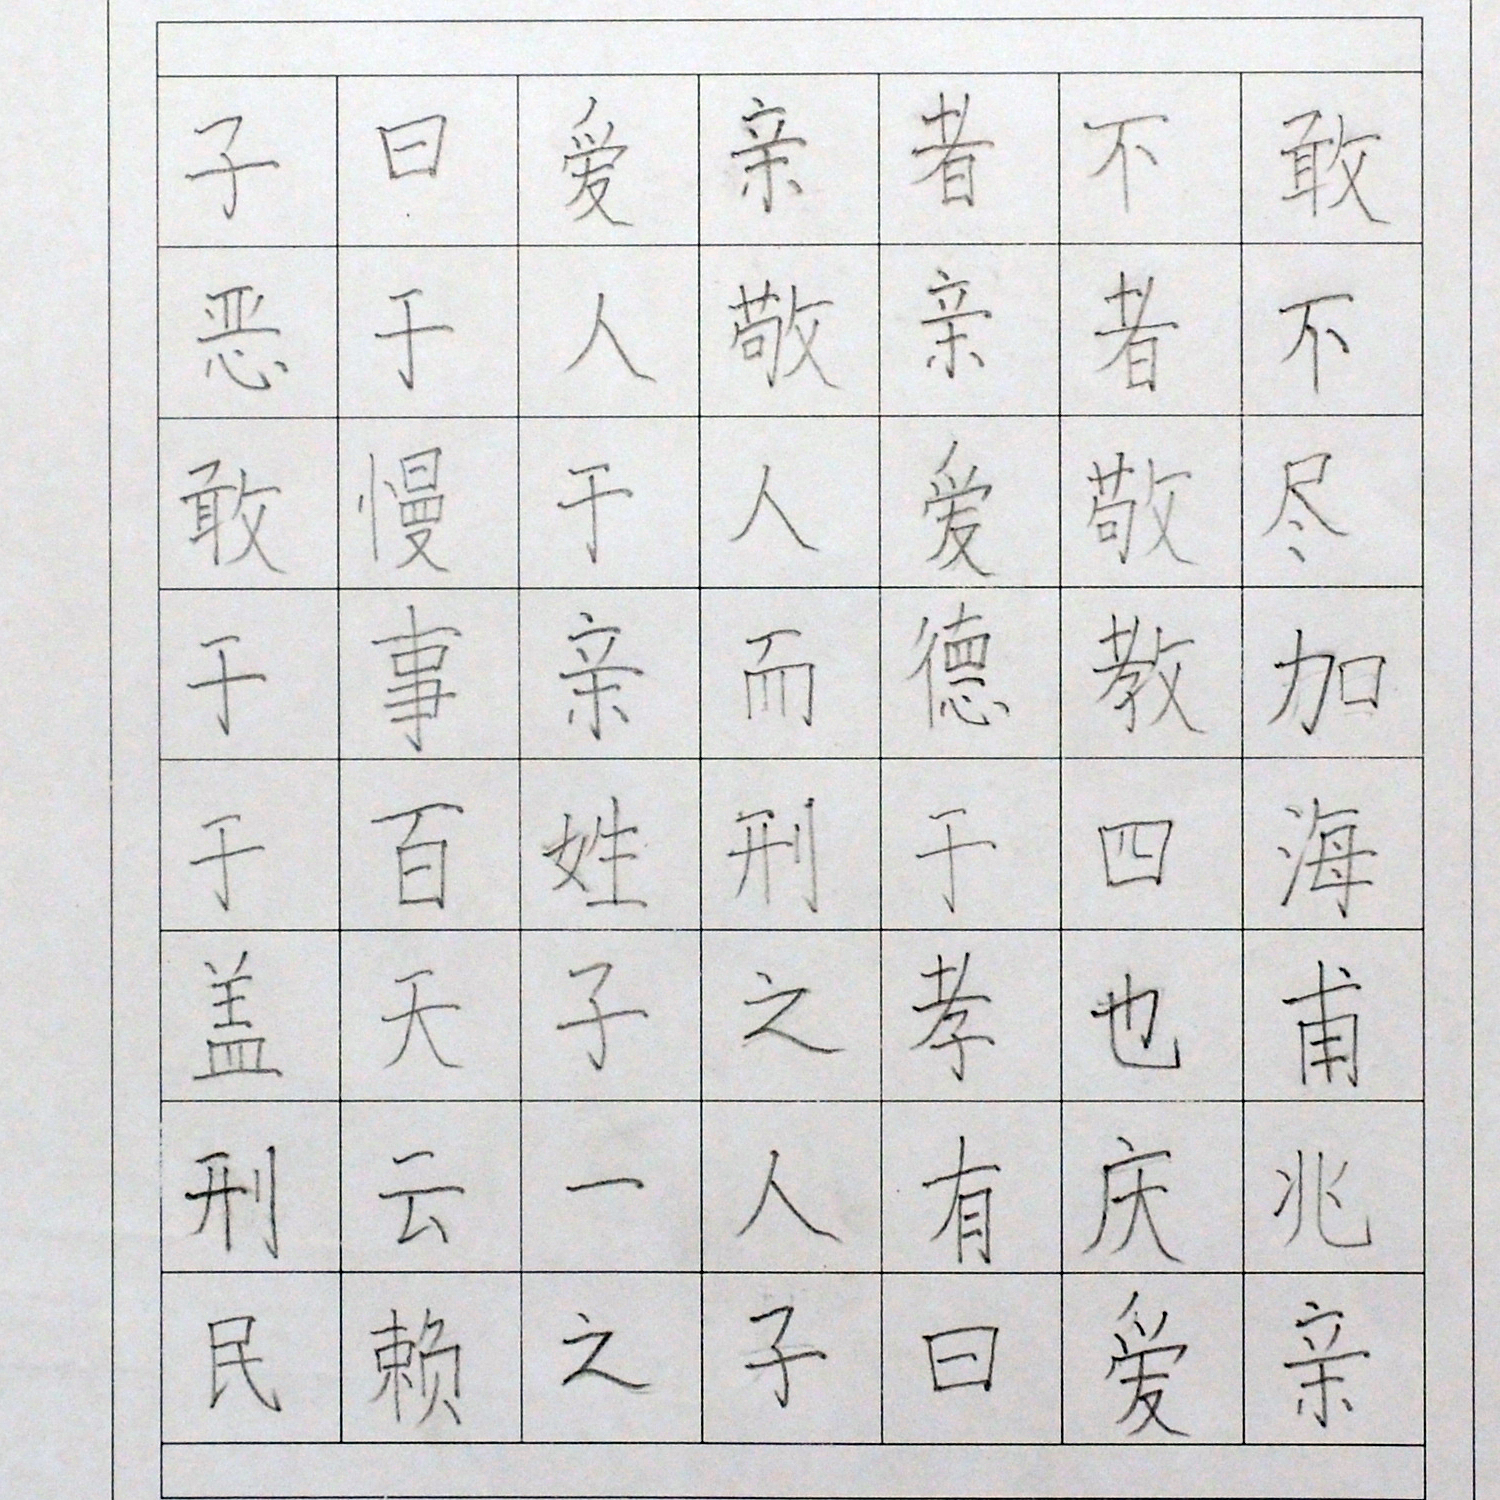 子曰爱亲者不敢
恶于人敬亲者不
敢慢于人爱敬尽
于事亲而德教加
于百姓刑于四海
盖天子之孝也甫
刑云一人有庆兆
民赖之子曰爱亲